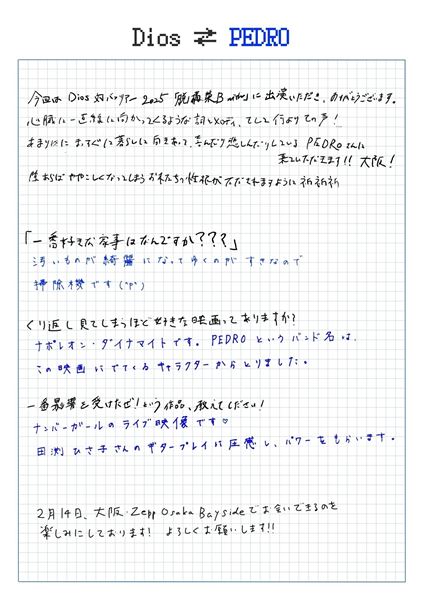 Dios ⇄ PEDRO
今回は Dios 対バンツアー 2025 「脱轟築B に出演いただき、ありがとうございます。
心臓に一直線に向かってくるような詞とメロディ、そして何よりその声!
あまりにまっすぐに暮らしに向きあって、喜んだり悲しんだりしている PEDROさんに
来ていただきます!! 大阪!
ややこしくなってしまうおれたちの性根が ただされますように 祈祈祈
「一番好きな家事はなんですか???」
汚いものが綺麗になってゆくのがすきなので
掃除機です
くり返し見てしまうほど好きな映画ってありますか?
ナポレオン・ダイナマイトです。PEDROというバンド名は、
この映画にでてくるキャラクターからとりました。
一番影響を受けたぜ!という作品、教えてください!
ナンバーガールのライブ映像です♡
田渕ひさ子さんのギタープレイは圧感し、パワーをもらいます。
2月14日、大阪・Zepp Osaka Baysideでお会いできるのを
楽しみにしております! よろしくお願いします!!